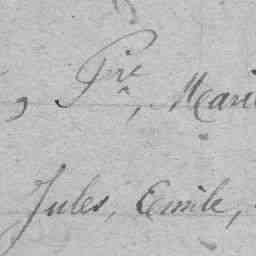 , Pre, Marie
Jules, Emile,